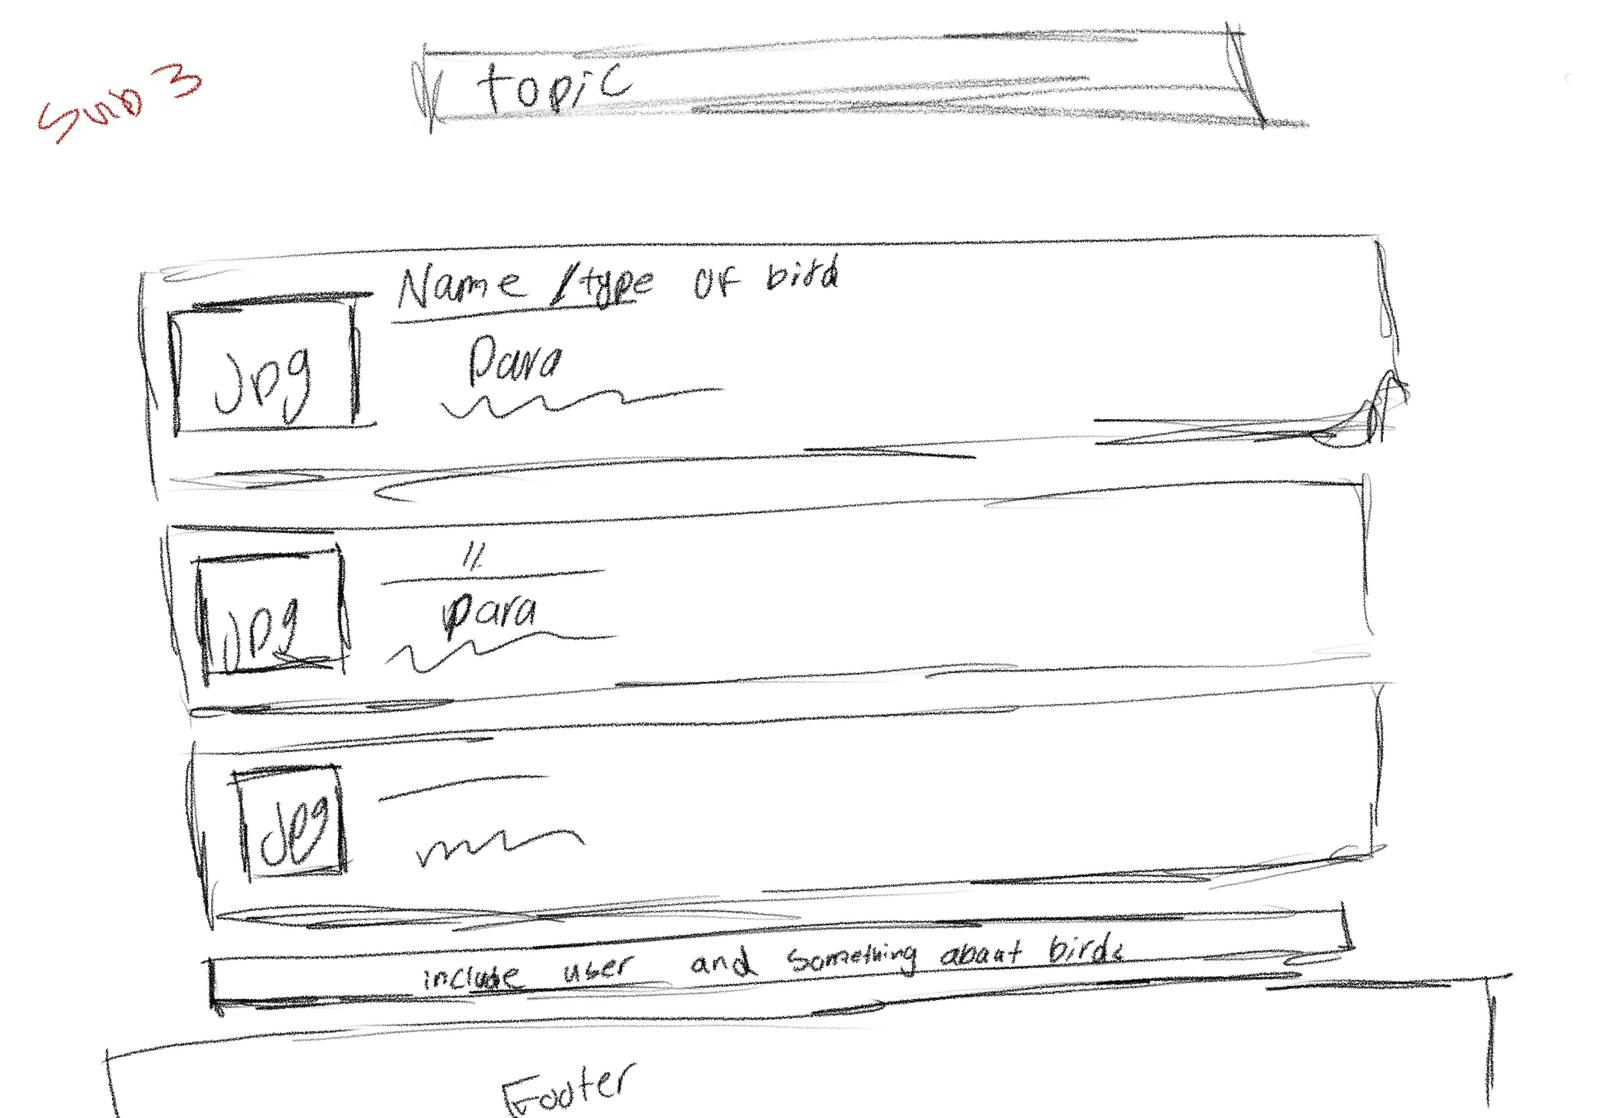 Sub 3
topic
Name / type of bird
jpg
Para
"
jpg
para
jpg
include user and something about birds
Footer